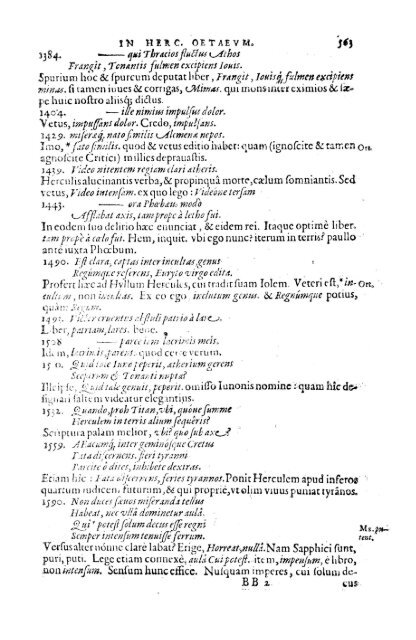 IN HERC. OETAEVM. 363
1384. —— qui Thracios fluctus Athos
Frangit, Tonantis fulmen excipiens Iouis.
Spurium hoc & spurcum deputat liber, Frangit, Iouisq; fulmen excipiens
minas. si tamen iuues & corrigas, Mimas. qui mons inter eximios & sæ-
pe huic nostro aliisq; dictus.
1404. —— ille nimius impulsus dolor.
Vetus, impulsans dolor. Credo, impulsans.
1429. miseræq, nato similis Alcmena nepos.
Imo, * fato similis. quod & vetus editio habet: quam (ignoscite & tamen On.
agnoscite Critici) millies deprauastis.
1439. Video nitentem regiam clari ætheris.
Herculis alucinantis verba, & propinquâ morte, cælum somniantis. Sed
vetus, Video intensam. ex quo lego: Videone tersam
1443. —— ora Phœbæus modò
Afflabat axis, tam prope à letho fui.
In eodem suo delirio hæc enunciat, & eidem rei. Itaque optimè liber.
tam propè à cœlo fui. Hem, inquit. vbi ego nunc? iterum in terris? paullo
ante iuxta Phœbum.
1490. Est clara, captas inter incultas genus
Regnúmque referens, Euryto virgo edita.
Profert hæc ad Hyllum Herculis, cui tradit suam Iolem. Veteri est, * in- On.
Ex eo ego inclutum genus. & Regnúmque potius,
quàm
Liber, patriam, lares. bene.
1508 —— lacrimis meis.
Idem, quod certè verum.
peperit, ætherium gerens
Sceptrum & Tonanti nupta?
genuit, peperit. omisso Iunonis nomine: quam hîc de-
signari saltem videatur elegantius.
1532. Quando, proh Titan, vbi, quóne summe
Herculem in terris alium sequêris?
Scriptura palam melior, vbi? quo sub axe?
1559. Æacumq, inter geminósque Cretas
Facta discernens, feriet tyranni
Parcite ô dites, inhibete dextras.
Etiam hîc: Facta discernens, feries tyrannos. Ponit Herculem apud inferos
quartum iudicem futurum, & qui propriè, vt olim viuus puniat tyrãnos.
1590. Non duces sæuos miseranda tellus
Habeat, nec vllâ dominetur aulâ.
Qui * potest solum decus esse regni Ms. pu-
Semper intensum tenuisse ferrum. tent.
Versus alter nonne clarè labat? Erige, Horreat, aulâ. Nam Sapphici sunt,
puri, puti. Lege etiam connexè, aulâ Cui potest. item, impensum, è libro,
non intensum. Sensum hunc effice. Nusquam imperes, cui solum de-
B B 2 cus